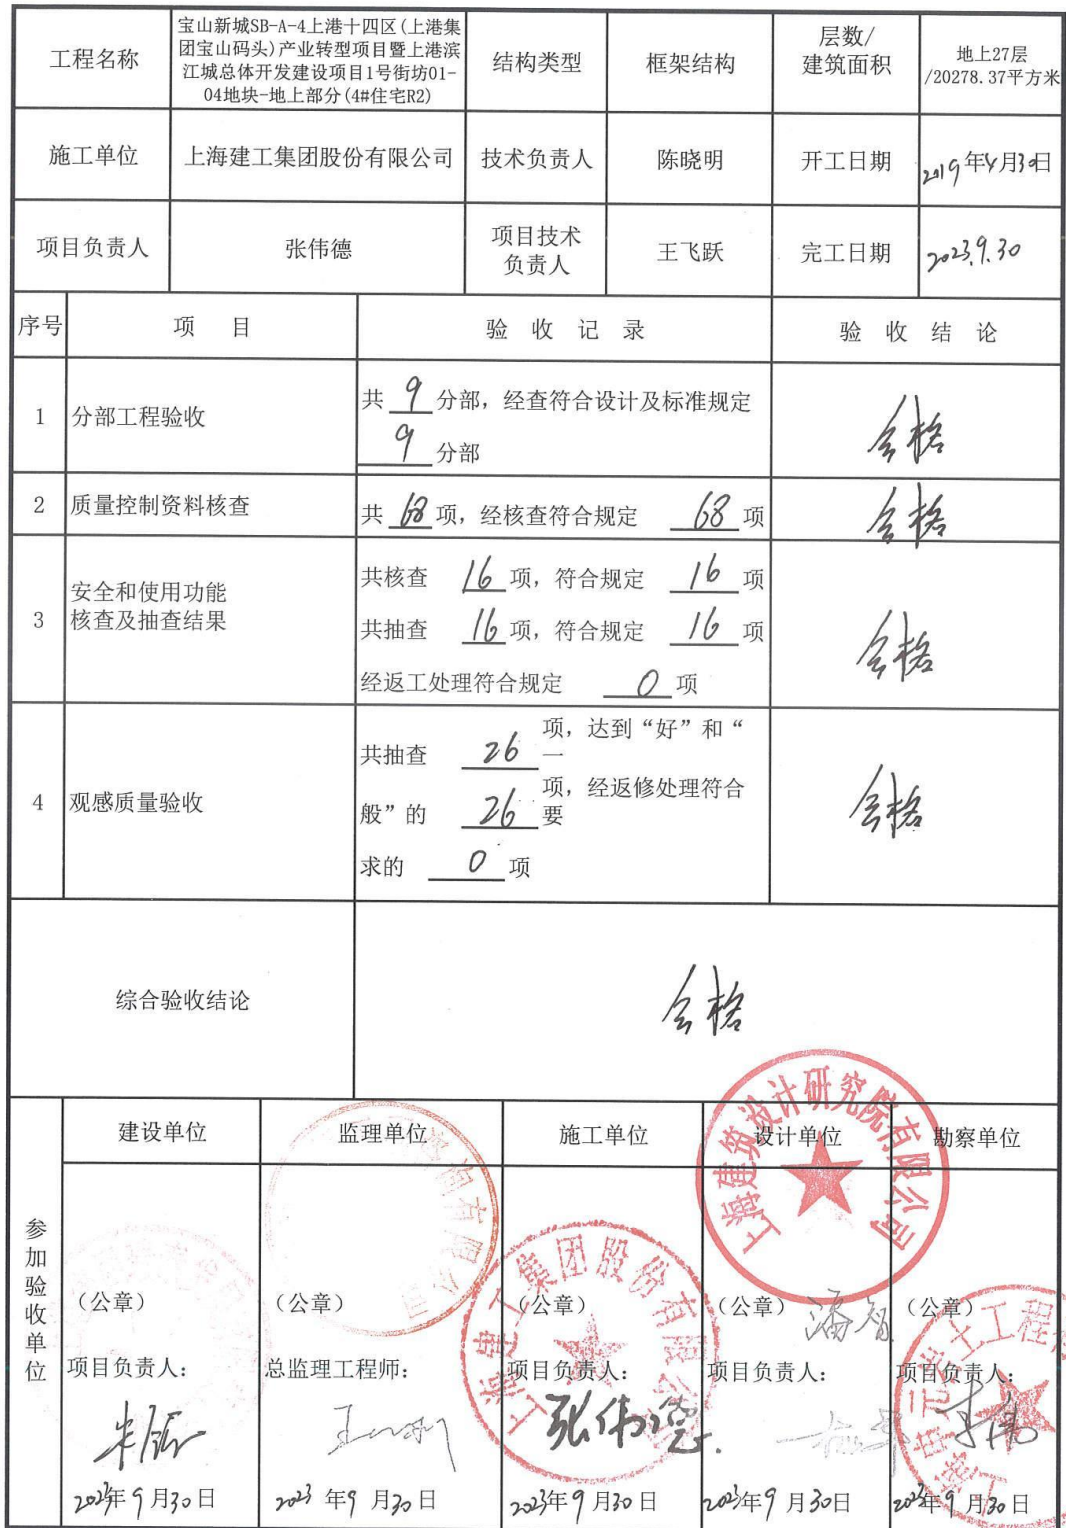 工程名称
宝山新城SB-A-4上港十四区(上港集
团宝山码头)产业转型项目暨上港滨
江城总体开发建设项目1号街坊01-
04地块-地上部分(4#住宅R2)
结构类型
框架结构
层数/
建筑面积
地上27层
/20278.37平方米
施工单位
上海建工集团股份有限公司
技术负责人
陈晓明
开工日期
2019年4月30日
项目负责人
张伟德
项目技术
负责人
王飞跃
完工日期
2023.9.30
序号
项 目
验 收 记 录
验 收 结 论
1
分部工程验收
共 9 分部，经查符合设计及标准规定
9 分部
合格
2
质量控制资料核查
共 68 项，经核查符合规定 68 项
合格
3
安全和使用功能
核查及抽查结果
共核查 16 项，符合规定 16 项
共抽查 16 项，符合规定 16 项
经返工处理符合规定 0 项
合格
4
观感质量验收
共抽查 26 项，达到“好”和“一
般”的 26 项，经返修处理符合要
求的 0 项
合格
综合验收结论
合格
参加验收单位
建设单位
监理单位
施工单位
设计单位
勘察单位
上海建筑设计研究院有限公司
上海建工集团股份有限公司
（公章）
（公章）
（公章）
（公章）
（公章）
项目负责人：
总监理工程师：
项目负责人：
项目负责人：
项目负责人：
张伟德
2023年9月30日
2023年9月30日
2023年9月30日
2023年9月30日
2023年9月30日